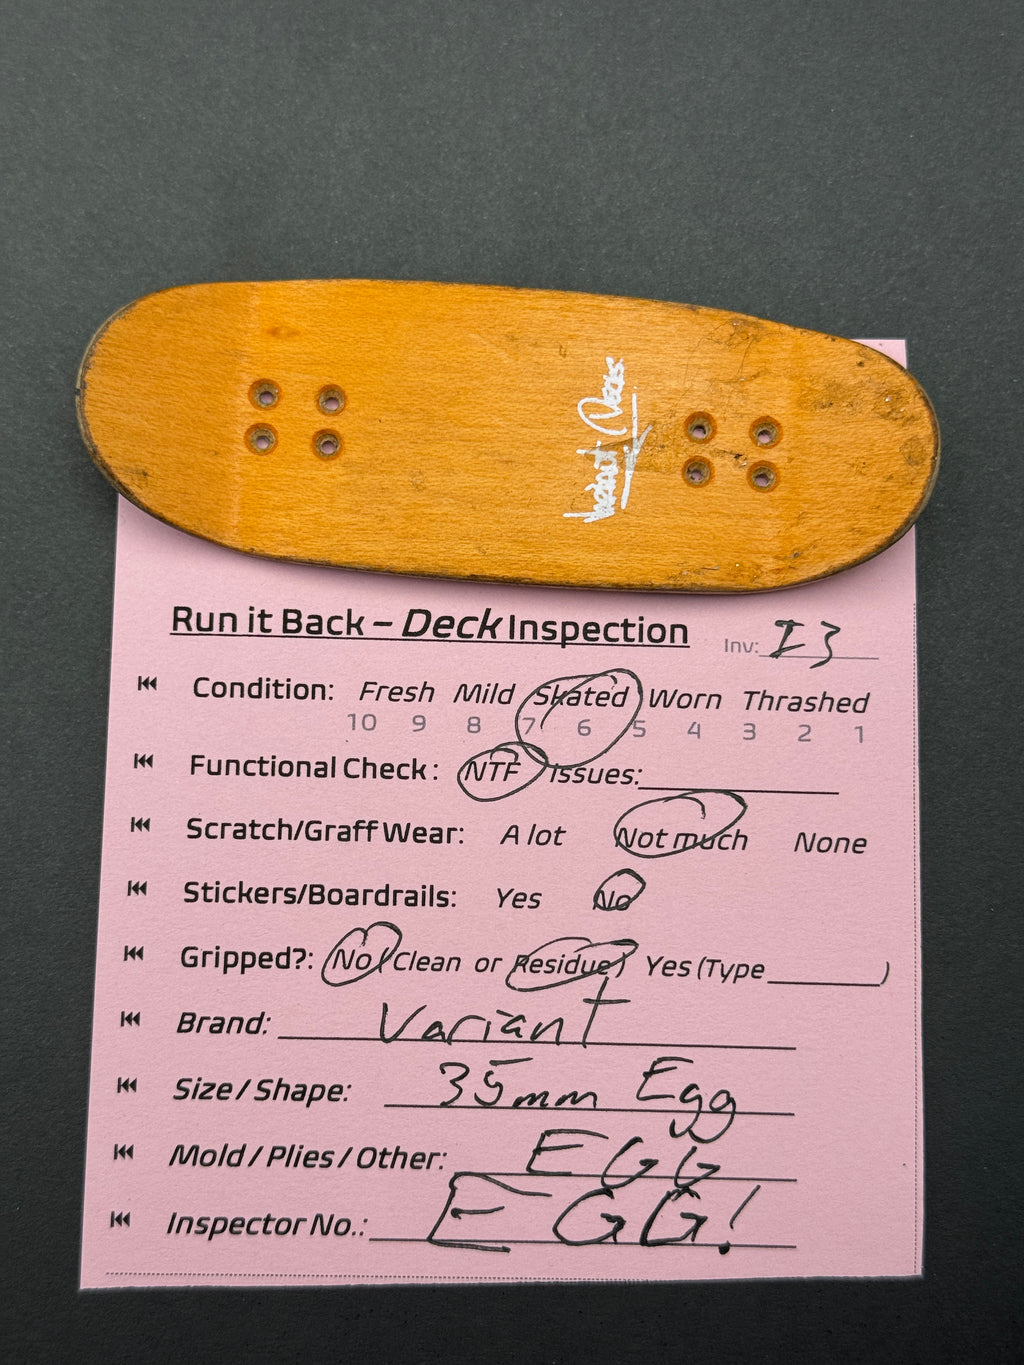 Run it Back – Deck Inspection Inv: I3
Condition: Fresh Mild Skated Worn Thrashed
10 9 8 7 6 5 4 3 2 1
Functional Check: NTF Issues:
Scratch/Graff Wear: A lot Not much None
Stickers/Boardrails: Yes No
Gripped?: No (Clean or Residue) Yes (Type )
Brand: Variant
Size / Shape: 35mm Egg
Mold / Plies / Other: EGG
Inspector No.: EGG!